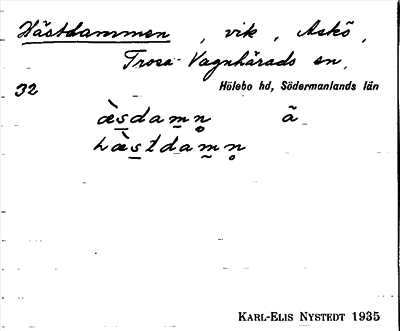 Hästdammen, vik, Askö,
Trosa-Vagnhärads sn,
32 Hölebo hd, Södermanlands län
æ̀s̲dam̲n̥ ã
hæ̀s̲tdam̲n̥
KARL-ELIS NYSTEDT 1935